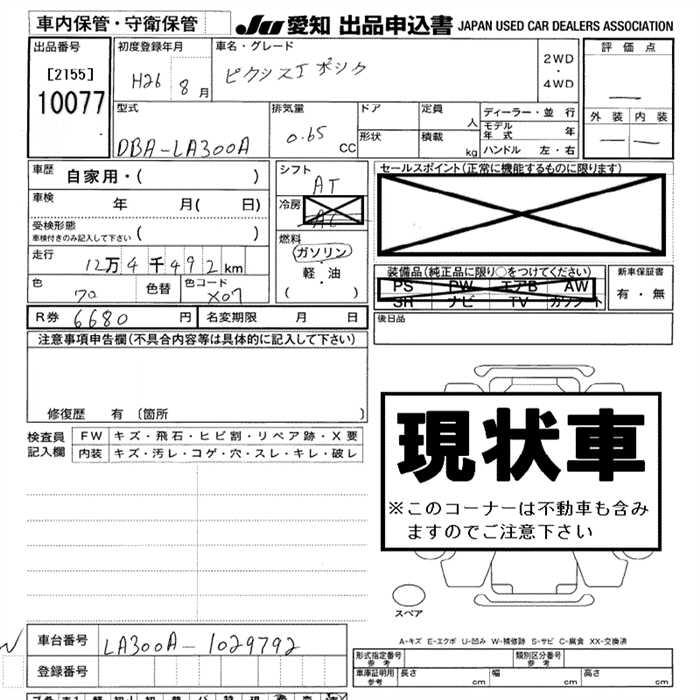 車内保管・守衛保管
JU 愛知 出品申込書 JAPAN USED CAR DEALERS ASSOCIATION
出品番号
[2155]
10077
初度登録年月
H26 8 月
車名・グレード
ピクシスエポック
2WD
・
4WD
評価点
外装 内装
型式
DBA-LA300A
排気量
0.65 CC
ドア
形状
定員 人
積載 kg
ディーラー・並行
モデル年式 年
ハンドル 左・右
車歴 自家用・( )
車検 年 月( 日)
受検形態
車検付きのみ記入して下さい ( )
走行
12万4千492km
色
70
色替
色コード
X07
シフト
AT
冷房
AC
燃料
ガソリン
・
軽・油
( )
セールスポイント(正常に機能するものに限ります)
装備品(純正品に限り○をつけてください)
PS PW エアB AW
SR ナビ TV カワシート
新車保証書
有・無
R券 6680 円 名変期限 月 日
後日品
注意事項申告欄(不具合内容等は具体的に記入して下さい)
修復歴 有 〔箇所 〕
検査員
記入欄
FW キズ・飛石・ヒビ割・リペア跡・X要
内装 キズ・汚レ・コゲ・穴・スレ・キレ・破レ
現状車
※このコーナーは不動車も含み
ますのでご注意下さい
スペア
A-キズ E-エクボ U-凹み W-補修跡 S-サビ C-腐食 XX-交換済
車台番号 LA300A-1029792
登録番号
形式指定番号
参考
類別区分番号
参考
車庫証明用
参考
長さ cm 幅 cm 高さ cm